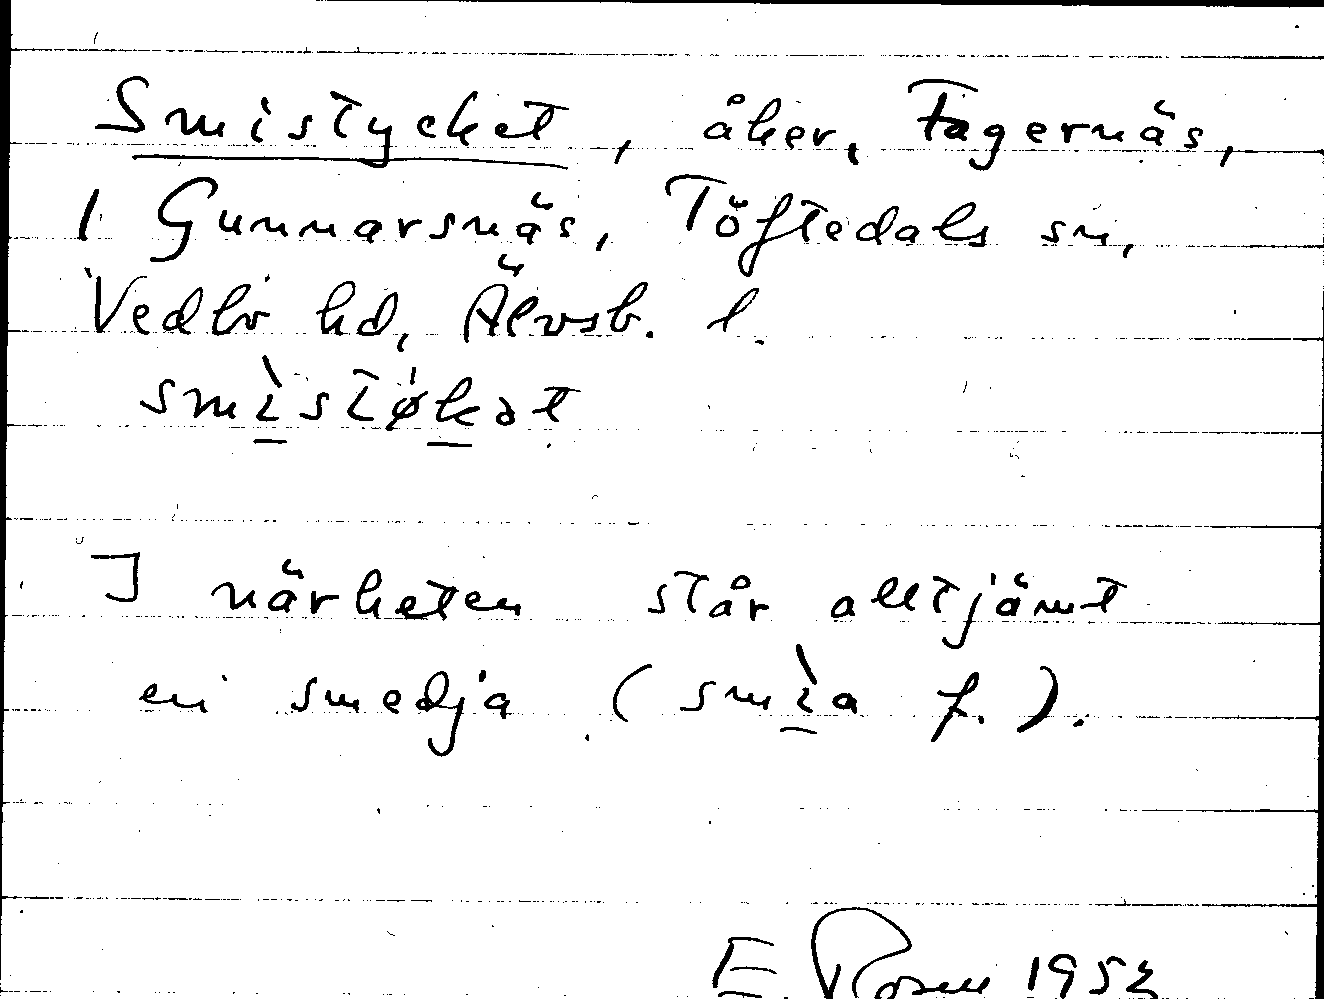 Smistycket, åker, Fagernäs,
1 Gunnarsnäs, Töftedals sn,
Vedbo hd, Älvsb. l.
smìstø̍kət
I närheten står alltjämt
en smedja (smìa f.).
E. Rosen 1952